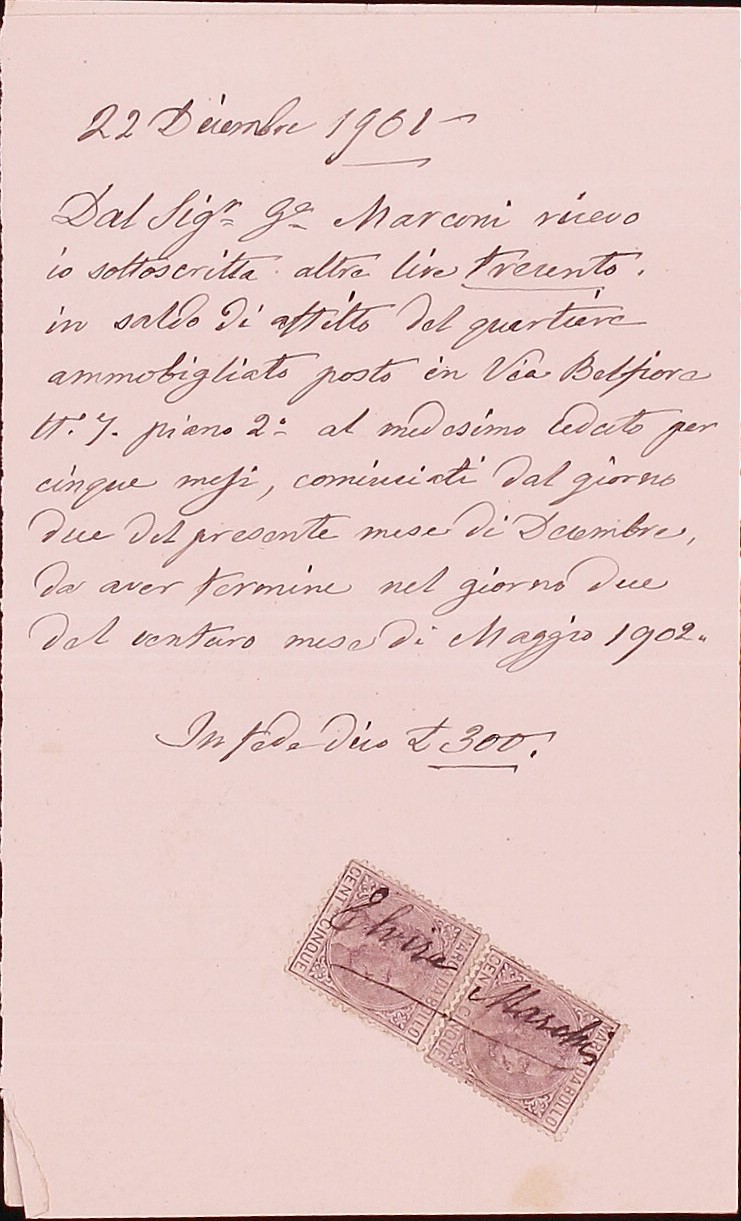 22 Decembre 1901 —
Dal Sig.r G.e Marconi ricevo
io sottoscritta altre lire trecento.
in saldo di affitto del quartiere
ammobigliato posto in Via Belfiore
N.° 7. piano 2.° al medesimo ceduto per
cinque mesi, cominciati dal giorno
due del presente mese di Decembre,
da aver termine nel giorno due
del venturo mese di Maggio 1902.
In fede dico £ 300.
Elvira Marchi
MARCA DA BOLLO
CENT. CINQUE
MARCA DA BOLLO
CENT. CINQUE